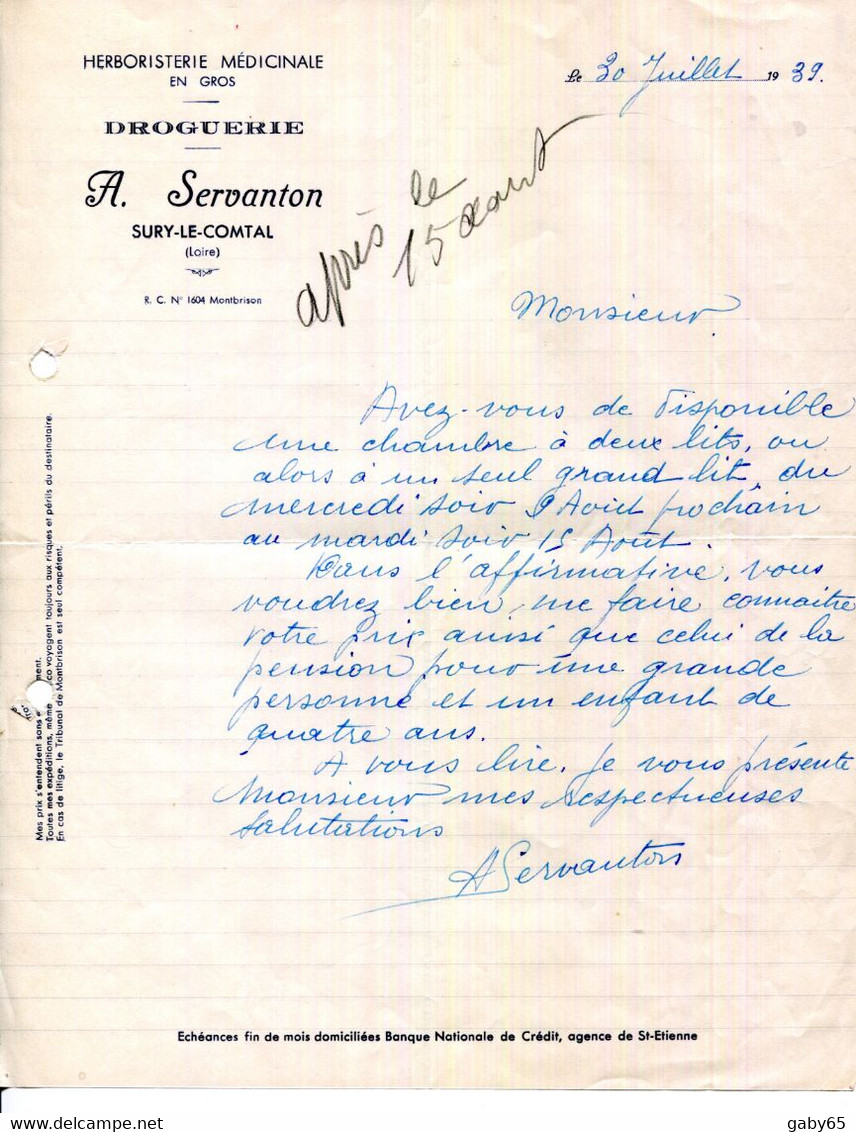 HERBORISTERIE MÉDICINALE
EN GROS
DROGUERIE
A. Servanton
SURY-LE-COMTAL
(Loire)
R. C. N° 1604 Montbrison
Le 30 Juillet 1939.
après le
15 aout
Monsieur
Avez-vous de disponible
une chambre à deux lits, ou
alors à un seul grand lit, du
mercredi soir 9 Août prochain
au mardi soir 15 Août.
Dans l'affirmative, vous
voudrez bien me faire connaitre
votre prix ainsi que celui de la
pension pour une grande
personne et un enfant de
quatre ans.
A vous lire, je vous présente
Monsieur mes respectueuses
salutations
A Servanton
Mes prix s'entendent sans
Toutes mes expéditions, même voyagent toujours aux risques et périls du destinataire.
En cas de litige, le Tribunal de Montbrison est seul compétent.
Echéances fin de mois domiciliées Banque Nationale de Crédit, agence de St-Etienne
gaby65